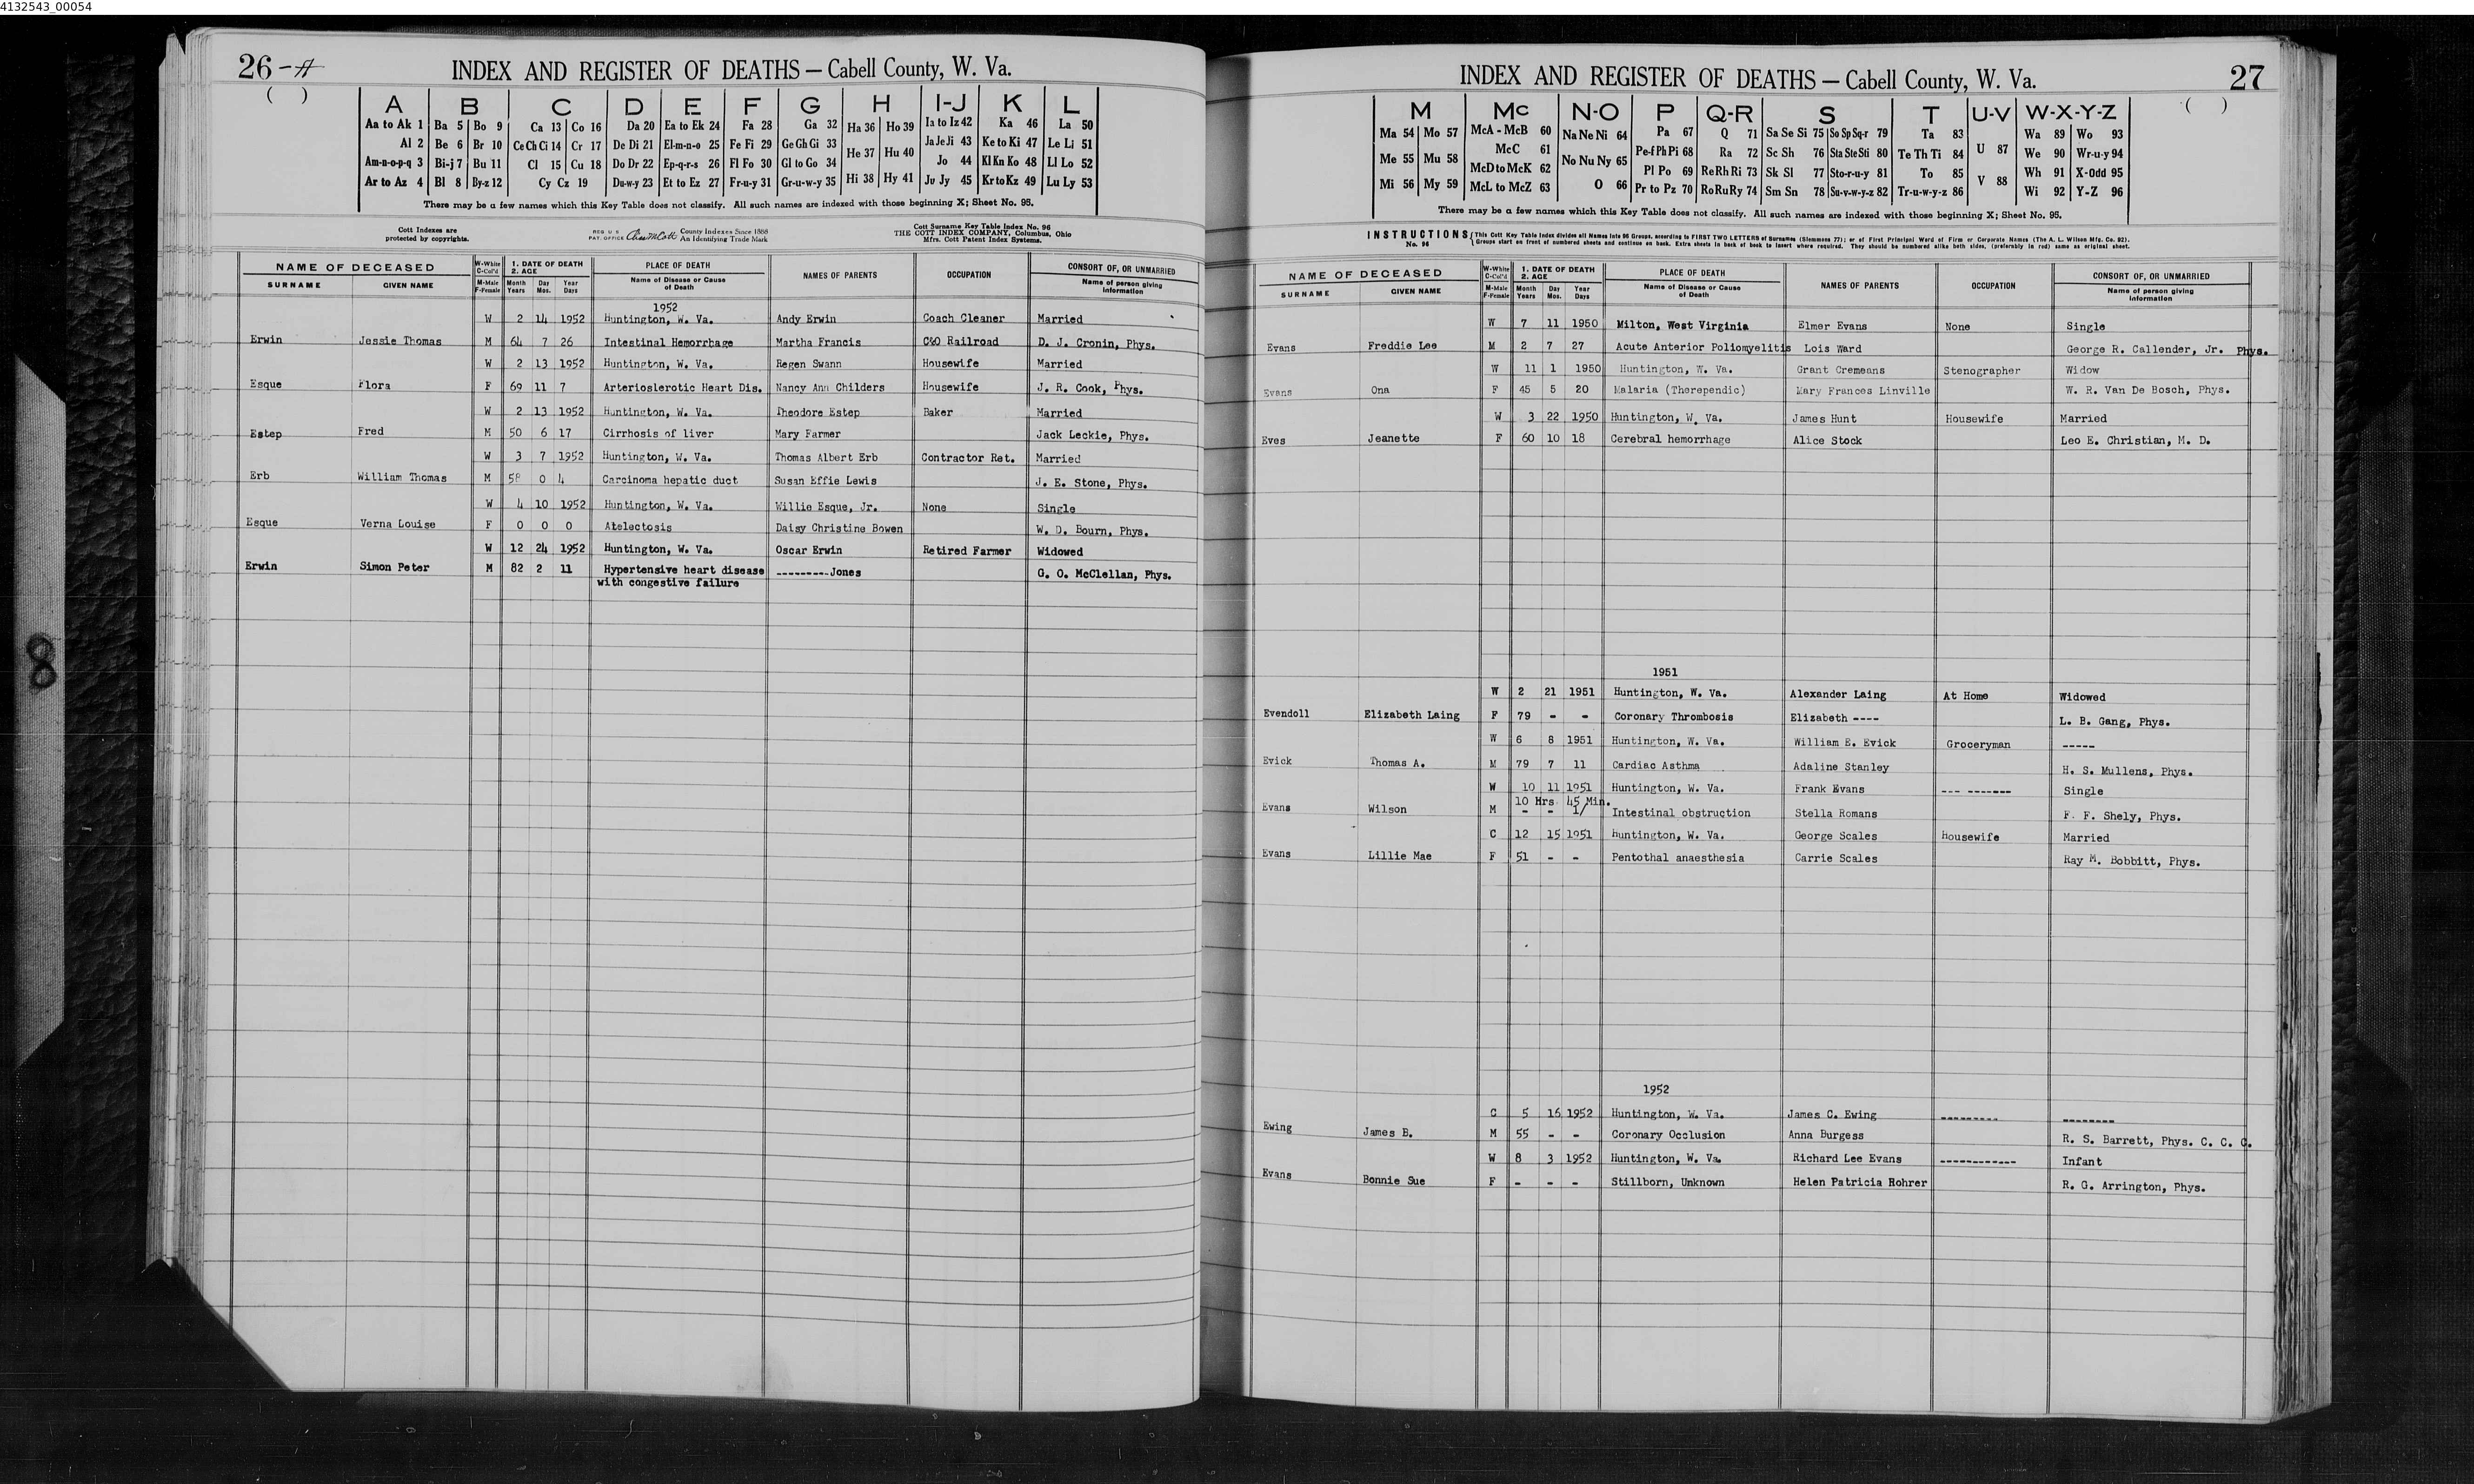 4132543_00054
26-A
( )
INDEX AND REGISTER OF DEATHS — Cabell County, W. Va.
A B C D E F G H I-J K L
Aa to Ak 1 Ba 5 Bo 9 Ca 13 Co 16 Da 20 Ea to Ek 24 Fa 28 Ga 32 Ha 36 Ho 39 Ia to Iz 42 Ka 46 La 50
Al 2 Be 6 Br 10 Ce Ch Ci 14 Cr 17 De Di 21 El-m-n-o 25 Fe Fi 29 Ge Gh Gi 33 He 37 Hu 40 Ja Je Ji 43 Ke to Ki 47 Le Li 51
Am-n-o-p-q 3 Bi-j 7 Bu 11 Cl 15 Cu 18 Do Dr 22 Ep-q-r-s 26 Fl Fo 30 Gl to Go 34 Jo 44 Kl Kn Ko 48 Ll Lo 52
Ar to Az 4 Bl 8 By-z 12 Cy Cz 19 Du-w-y 23 Et to Ez 27 Fr-u-y 31 Gr-u-w-y 35 Hi 38 Hy 41 Ju Jy 45 Kr to Kz 49 Lu Ly 53
There may be a few names which this Key Table does not classify. All such names are indexed with those beginning X; Sheet No. 95.
Cott Indexes are protected by copyrights.
REG. U. S. PAT. OFFICE County Indexes Since 1888 An Identifying Trade Mark
Cott Surname Key Table Index No. 96
THE COTT INDEX COMPANY, Columbus, Ohio
Mfrs. Cott Patent Index Systems.
NAME OF DECEASED W-White C-Col'd 1. DATE OF DEATH 2. AGE PLACE OF DEATH NAMES OF PARENTS OCCUPATION CONSORT OF, OR UNMARRIED
SURNAME GIVEN NAME M-Male F-Female Month Years Day Mos. Year Days Name of Disease or Cause of Death Name of person giving information
1952
W 2 14 1952 Huntington, W. Va. Andy Erwin Coach Cleaner Married
Erwin Jessie Thomas M 64 7 26 Intestinal Hemorrhage Martha Francis C&O Railroad D. J. Cronin, Phys.
W 2 13 1952 Huntington, W. Va. Regen Swann Housewife Married
Esque Flora F 69 11 7 Arterioslerotic Heart Dis. Nancy Ann Childers Housewife J. R. Cook, Phys.
W 2 13 1952 Huntington, W. Va. Theodore Estep Baker Married
Estep Fred M 50 6 17 Cirrhosis of liver Mary Farmer Jack Leckie, Phys.
W 3 7 1952 Huntington, W. Va. Thomas Albert Erb Contractor Ret. Married
Erb William Thomas M 58 0 4 Carcinoma hepatic duct Susan Effie Lewis J. E. Stone, Phys.
W 4 10 1952 Huntington, W. Va. Willie Esque, Jr. None Single
Esque Verna Louise F 0 0 0 Atelectosis Daisy Christine Bowen W. D. Bourn, Phys.
W 12 24 1952 Huntington, W. Va. Oscar Erwin Retired Farmer Widowed
Erwin Simon Peter M 82 2 11 Hypertensive heart disease ---------Jones G. O. McClellan, Phys.
with congestive failure
8
INDEX AND REGISTER OF DEATHS — Cabell County, W. Va.
27
( )
M Mc N-O P Q-R S T U-V W-X-Y-Z
Ma 54 Mo 57 McA - McB 60 Na Ne Ni 64 Pa 67 Q 71 Sa Se Si 75 So Sp Sq-r 79 Ta 83 U 87 Wa 89 Wo 93
Me 55 Mu 58 McC 61 No Nu Ny 65 Pe-f Ph Pi 68 Ra 72 Sc Sh 76 Sta Ste Sti 80 Te Th Ti 84 We 90 Wr-u-y 94
McD to McK 62 Pl Po 69 Re Rh Ri 73 Sk Sl 77 Sto-r-u-y 81 To 85 V 88 Wh 91 X-Odd 95
Mi 56 My 59 McL to McZ 63 O 66 Pr to Pz 70 Ro Ru Ry 74 Sm Sn 78 Su-v-w-y-z 82 Tr-u-w-y-z 86 Wi 92 Y-Z 96
There may be a few names which this Key Table does not classify. All such names are indexed with those beginning X; Sheet No. 95.
INSTRUCTIONS No. 96
This Cott Key Table Index divides all Names into 96 Groups, according to FIRST TWO LETTERS of Surnames (Slemmons 77); or of First Principal Word of Firm or Corporate Names (The A. L. Wilsen Mfg. Co. 92).
Groups start on front of numbered sheets and continue on back. Extra sheets in back of book to insert where required. They should be numbered alike both sides, (preferably in red) same as original sheet.
NAME OF DECEASED W-White C-Col'd 1. DATE OF DEATH 2. AGE PLACE OF DEATH NAMES OF PARENTS OCCUPATION CONSORT OF, OR UNMARRIED
SURNAME GIVEN NAME M-Male F-Female Month Years Day Mos. Year Days Name of Disease or Cause of Death Name of person giving information
W 7 11 1950 Milton, West Virginia Elmer Evans None Single
Evans Freddie Lee M 2 7 27 Acute Anterior Poliomyelitis Lois Ward George R. Callender, Jr. Phys.
W 11 1 1950 Huntington, W. Va. Grant Cremeans Stenographer Widow
Evans Ona F 45 5 20 Malaria (Therependic) Mary Frances Linville W. R. Van De Bosch, Phys.
W 3 22 1950 Huntington, W. Va. James Hunt Housewife Married
Eves Jeanette F 60 10 18 Cerebral hemorrhage Alice Stock Leo E. Christian, M. D.
1951
W 2 21 1951 Huntington, W. Va. Alexander Laing At Home Widowed
Evendoll Elizabeth Laing F 79 - - Coronary Thrombosis Elizabeth ---- L. B. Gang, Phys.
W 6 8 1951 Huntington, W. Va. William E. Evick Groceryman -----
Evick Thomas A. M 79 7 11 Cardiac Asthma Adaline Stanley H. S. Mullens, Phys.
W 10 11 1951 Huntington, W. Va. Frank Evans --- ------- Single
10 Hrs 45 Min.
Evans Wilson M - - 1/ Intestinal obstruction Stella Romans F. F. Shely, Phys.
C 12 15 1951 Huntington, W. Va. George Scales Housewife Married
Evans Lillie Mae F 51 - - Pentothal anaesthesia Carrie Scales Ray M. Bobbitt, Phys.
1952
C 5 16 1952 Huntington, W. Va. James C. Ewing --------- --------
Ewing James B. M 55 - - Coronary Occlusion Anna Burgess R. S. Barrett, Phys. C. C. C.
W 8 3 1952 Huntington, W. Va. Richard Lee Evans ------------ Infant
Evans Bonnie Sue F - - - Stillborn, Unknown Helen Patricia Rohrer R. G. Arrington, Phys.